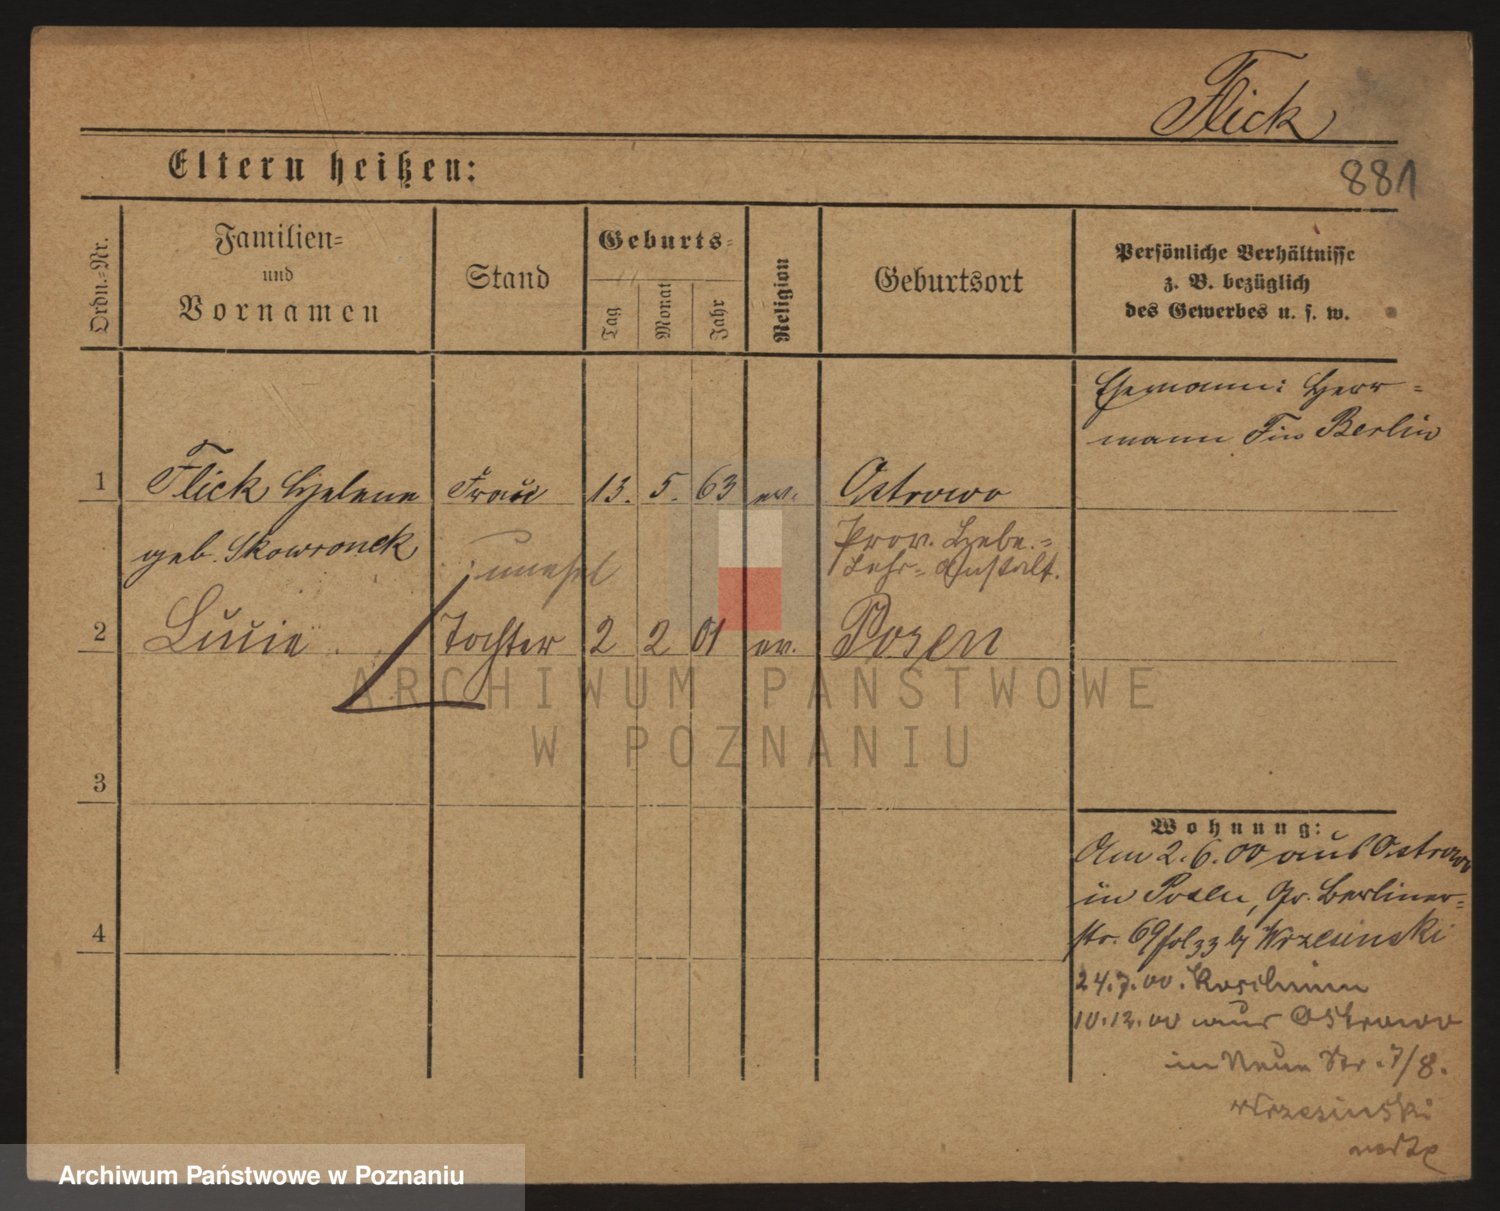 Flick
881
Eltern heißen:
Ordn.-Nr.
Familien-
und
Vornamen
Stand
Geburts-
Tag
Monat
Jahr
Religion
Geburtsort
Persönliche Verhältnisse
z. B. bezüglich
des Gewerbes u. s. w.
Ehemann: Herr-
mann F in Berlin
1 Flick Helene Frau 13. 5. 63 ev. Ostrowo
geb. Skowronek
unehel
Prov. Hebe.-
Lehr-Anstalt.
2 Lucie Tochter 2 2 01 ev. Posen
ARCHIWUM PAŃSTWOWE
W POZNANIU
3
Wohnung:
Am 2.6.00 aus Ostrowo
in Posen, Gr. Berliner-
str. 69 b/ Wrzesinski
4
24.7.00.
10.12.00 aus Ostrowo
in Neue Str. 7/8.
Wrzesinski
Archiwum Państwowe w Poznaniu